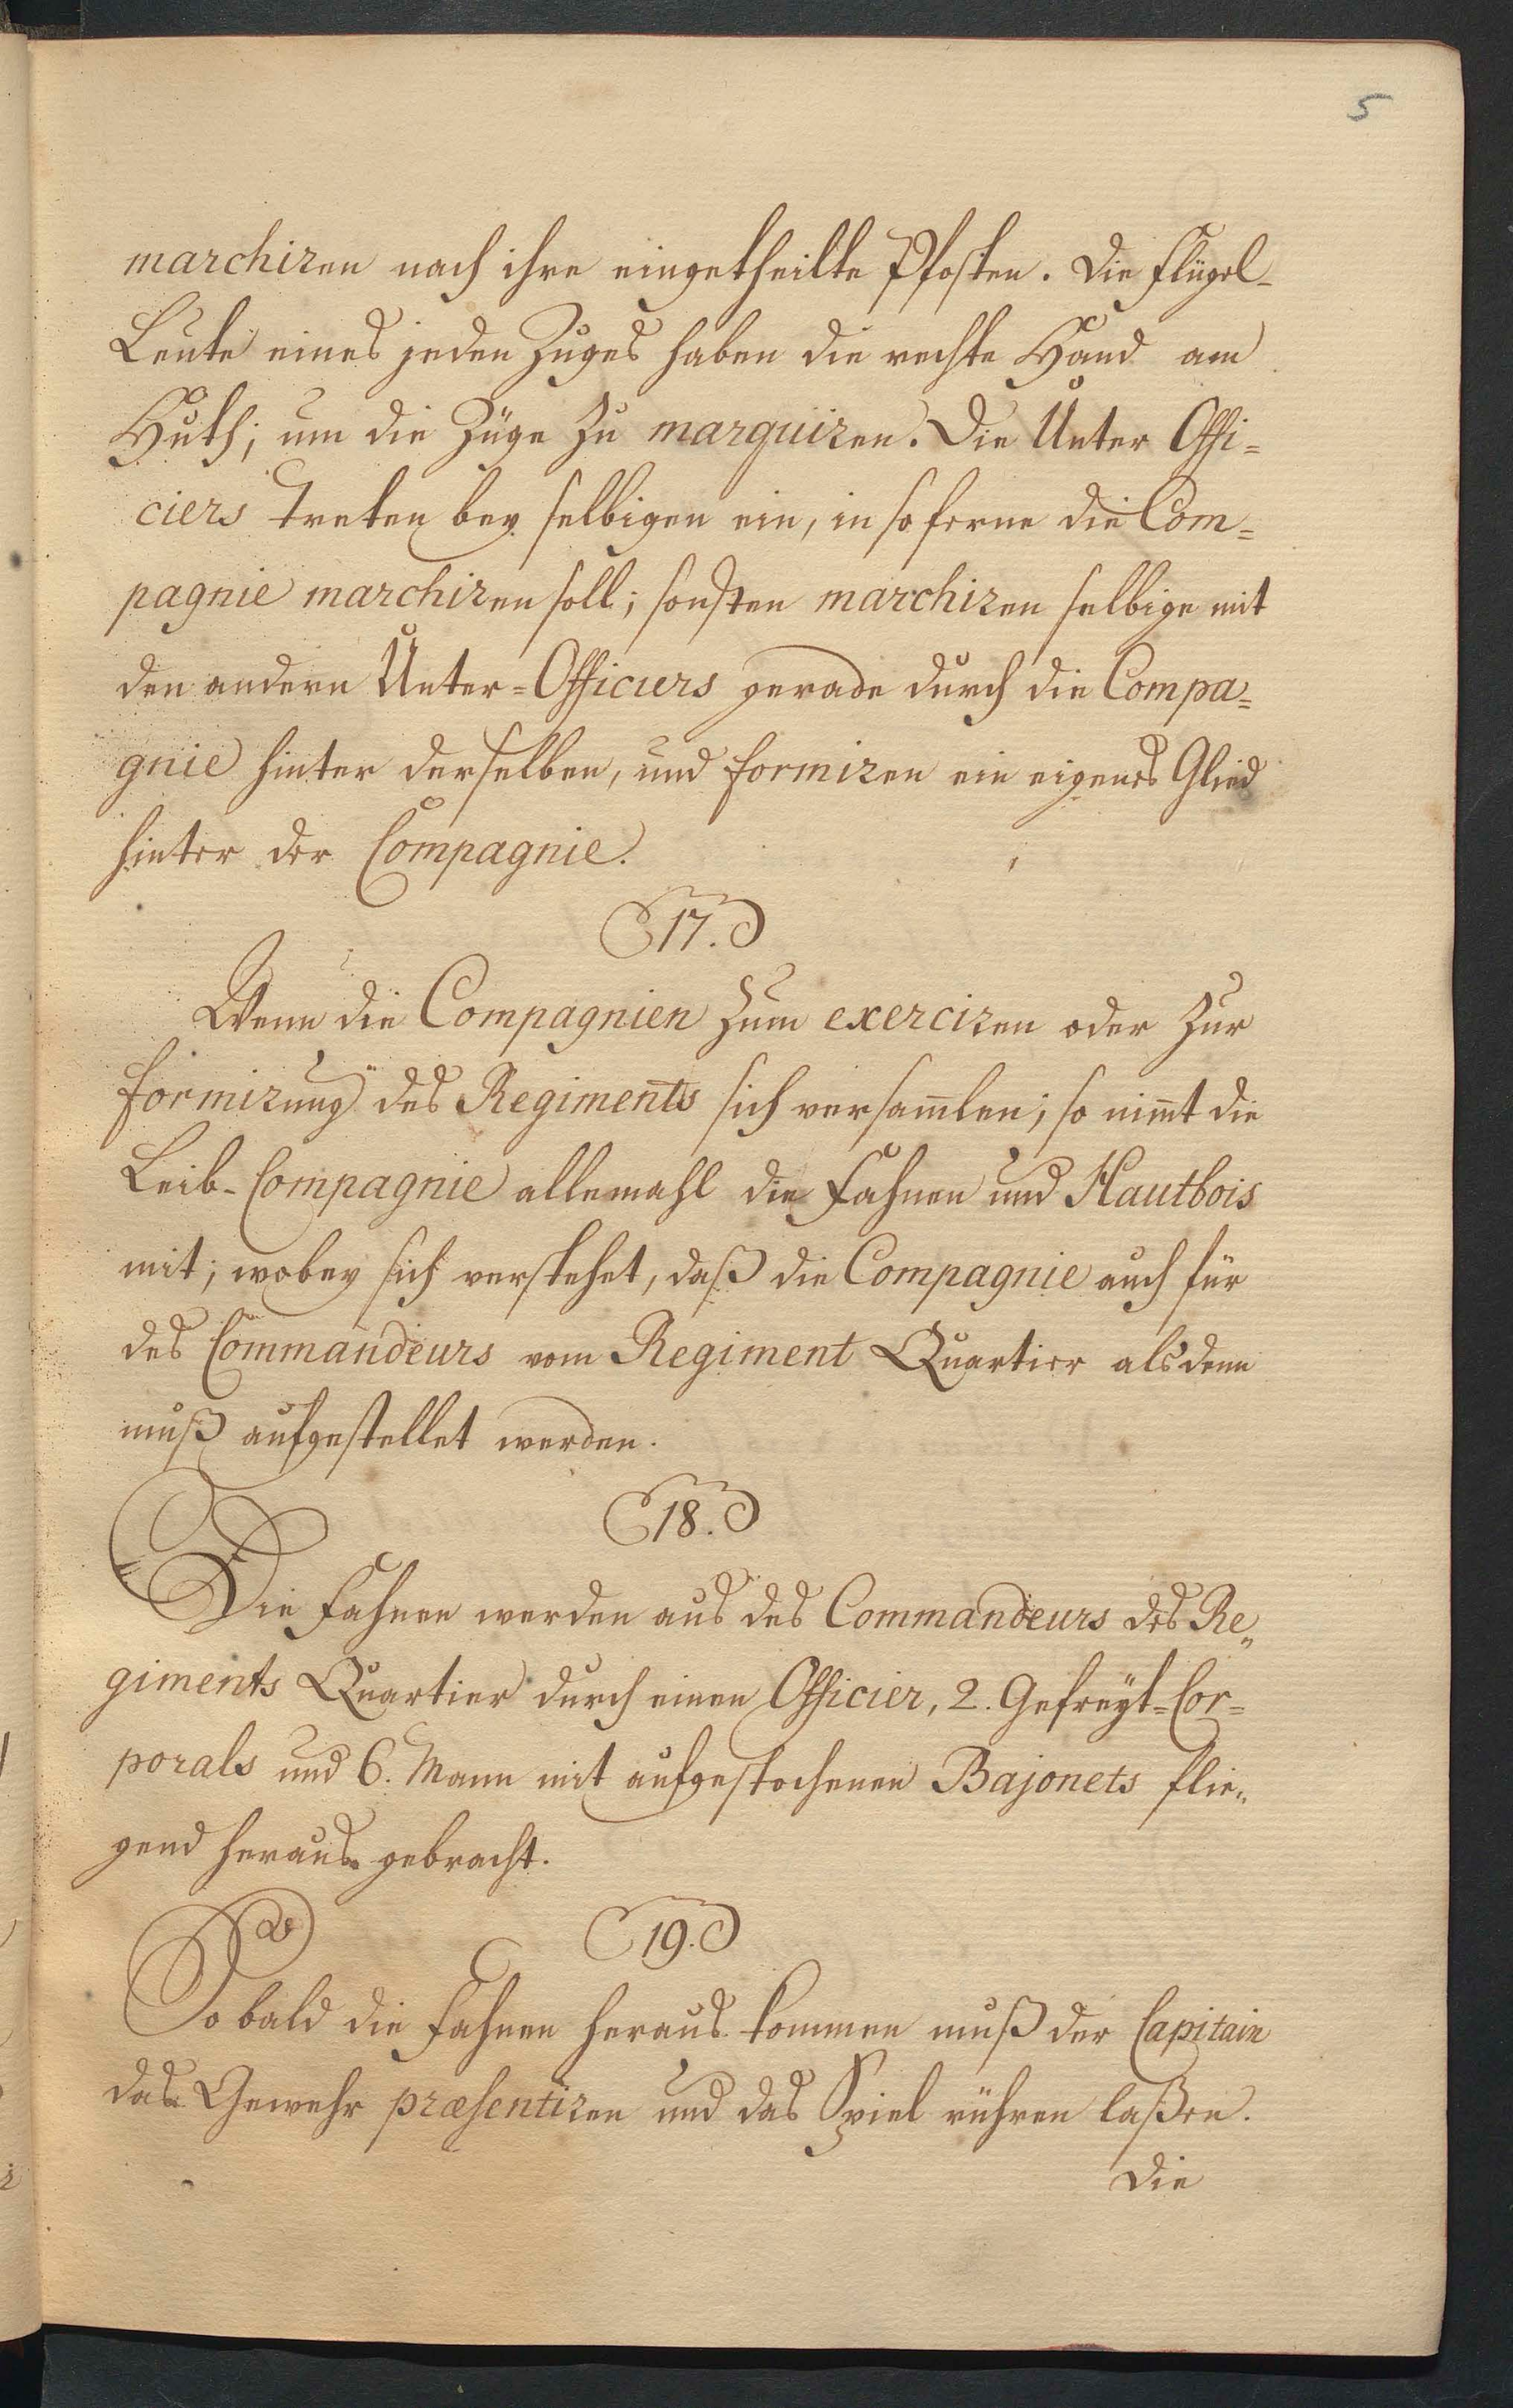 5
marchiren nach ihre eingetheilte Pfosten. Die Flügel-
Leute eines jeden Zuges haben die rechte Hand am
Huth; um die Züge zu marquiren. Die Unter Offi=
ciers treten bey selbigen ein, in so ferne die Com=
pagnie marchiren soll; sonsten marchiren selbige mit
den andern Unter=Officiers gerade durch die Compa=
gnie hinter derselben, und formiren ein eigenes Glied
hinter der Compagnie.
17.
Wenn die Compagnien zum exerciren oder zur
formirung des Regiments sich versam̄len; so nim̄t die
Leib-Compagnie allemahl die Fahnen und Hautbois
mit; wobey sich verstehet, daß die Compagnie auch für
des Commandeurs vom Regiment Quartier als denn
muß aufgestellet werden.
18.
Die Fahnen werden aus des Commandeurs des Re„
giments Quartier durch einen Officier, 2. Gefreyt=Cor=
porals und 6. Mann mit aufgestochenen Bajonets flie„
gend heraus gebracht.
19.
So bald die Fahnen heraus kommen muß der Capitain
das Gewehr præsentiren und das Spiel rühren laßen.
Die